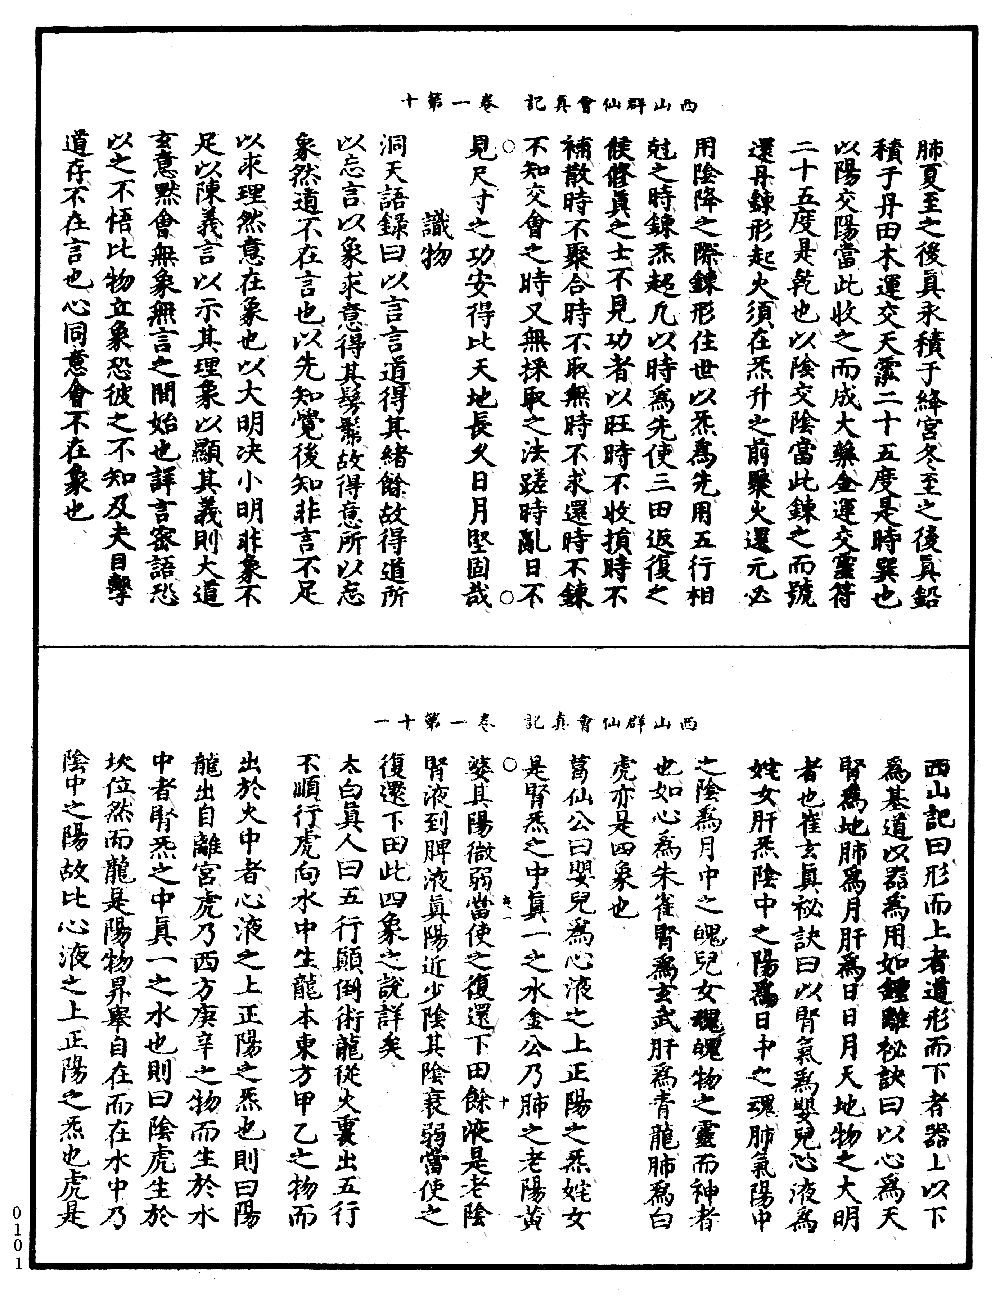 西山群仙會真記　卷一第十
肺夏至之後眞永積于絳宮冬至之後眞鉛
積于丹田木運交天䨺二十五度是時巽也
以陽交陽當此收之而成大藥金運交靈符
二十五度是乾也以陰交陰當此鍊之而號
還丹鍊形起火須在炁升之前聚火還元必
用陰降之際鍊形住世以炁爲先用五行相
尅之時鍊炁超凡以時爲先使三田返復之
候修眞之士不見功者以旺時不收損時不
補散時不聚合時不取無時不求還時不鍊
不知交會之時又無採取之法蹉時亂日不
見尺寸之功安得比天地長久日月堅固哉
識物
洞天語録曰以言言道得其緒餘故得道所
以忘言以象求意得其髣髴故得意所以忘
象然道不在言也以先知覺後知非言不足
以求理然意在象也以大明決小明非象不
足以陳義言以示其理象以顯其義則大道
玄意默會無象無言之間始也詳言密語恐
以之不悟比物立象恐彼之不知及夫目擊
道存不在言也心同意會不在象也
西山群仙會真記　卷一第十一
西山記曰形而上者道形而下者器上以下
爲基道以器爲用如鍾離祕訣曰以心爲天
腎爲地肺爲月肝爲日日月天地物之大明
者也崔玄真祕訣曰以腎氣爲嬰兒心液爲
姹女肝炁陰中之陽爲日中之魂肺氣陽中
之陰爲月中之魄兒女魂魄物之靈而神者
也如心爲朱雀腎爲玄武肝爲青龍肺爲白
虎亦是四象也
葛仙公曰嬰兒爲心液之上正陽之炁姹女
是腎炁之中眞一之水金公乃肺之老陽黃
婆其陽微弱當使之復還下田餘液是老陰
腎液到脾液眞陽近少陰其陰衰弱當使之
復還下田此四象之說詳矣
太白眞人曰五行顚倒術龍從火裏出五行
不順行虎向水中生龍本東方甲乙之物而
出於火中者心液之上正陽之炁也則曰陽
龍出自離宮虎乃西方庚辛之物而生於水
中者腎炁之中眞一之水也則曰陰虎生於
坎位然而龍是陽物昇擧自在而在水中乃
陰中之陽故比心液之上正陽之炁也虎是
0101